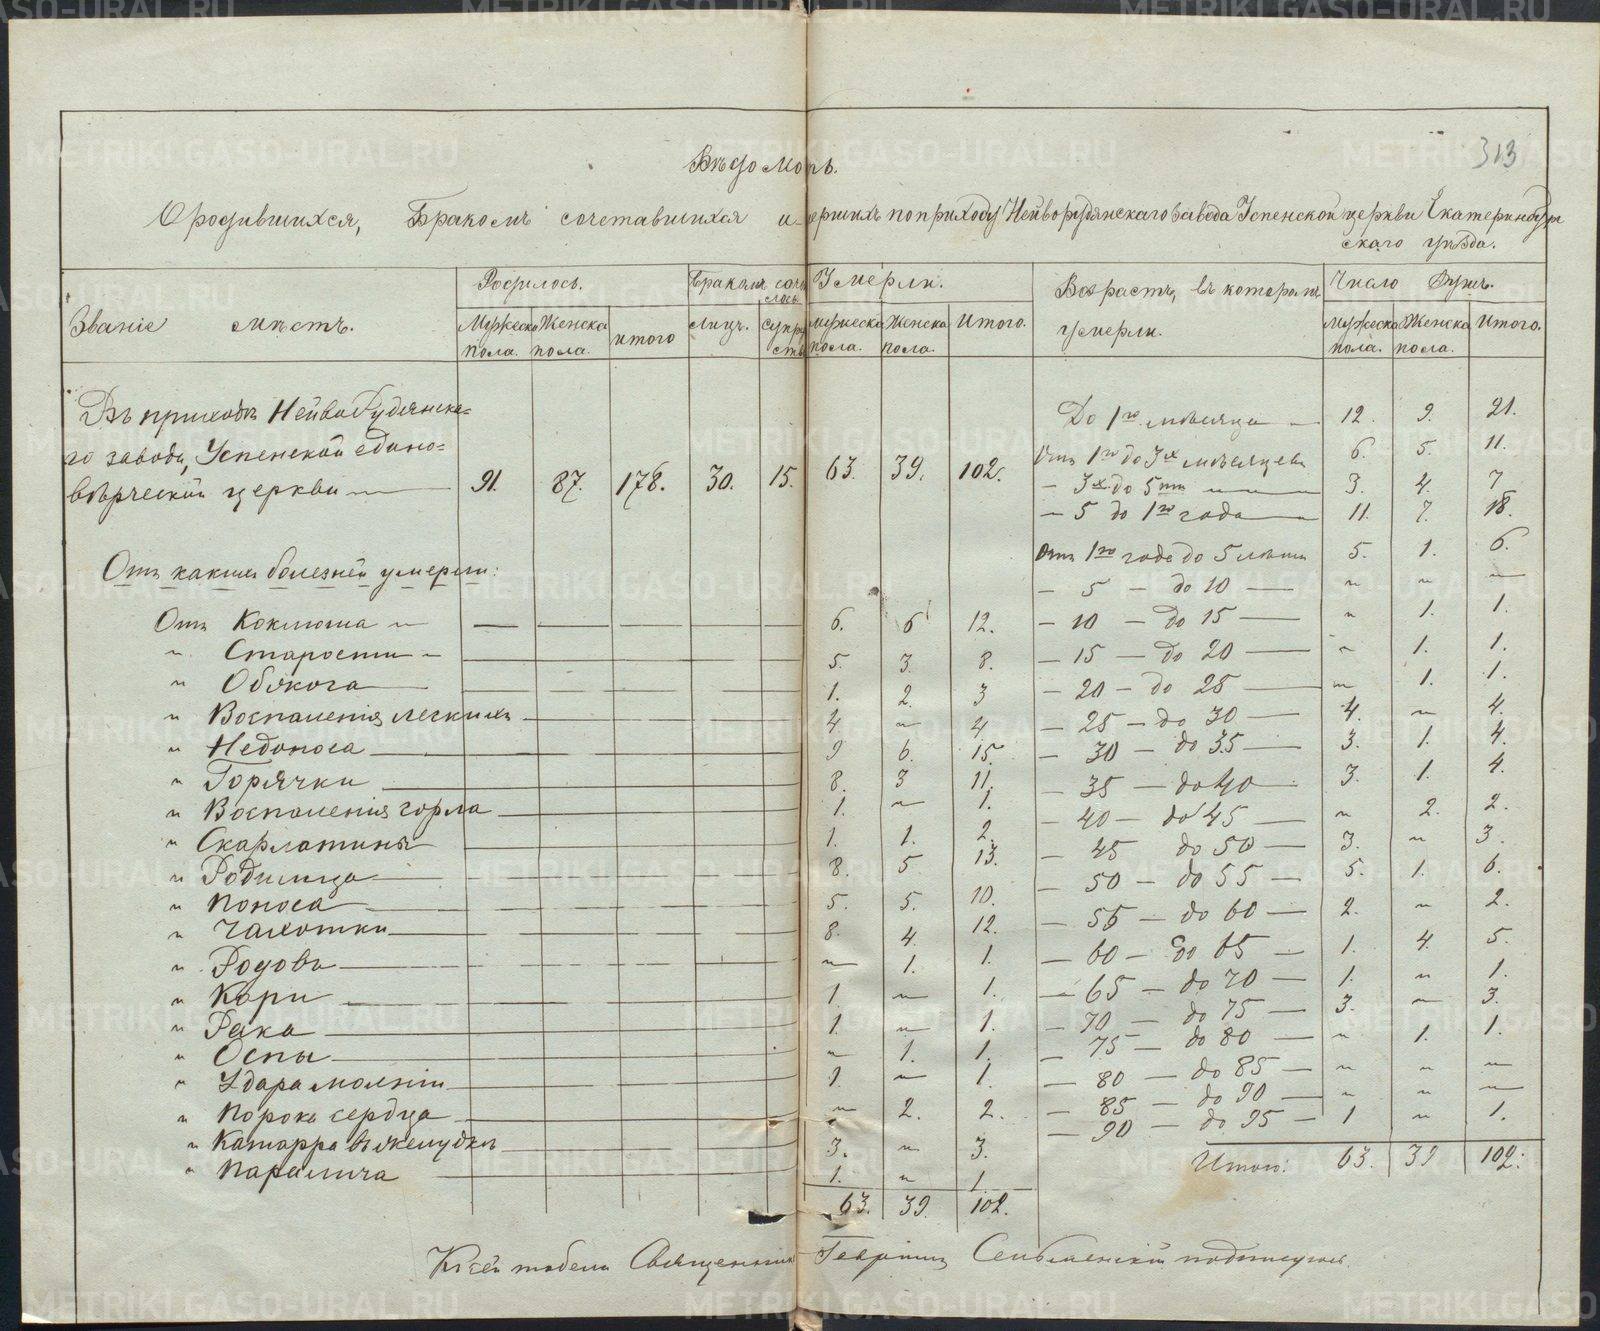 313
Вѣдомость.
О родившихся, Бракомъ сочетавшихся и умершихъ по приходу Нейворудянскаго завода Успенской церкви Екатеринбур
скаго уѣзда.
Званіе мѣстъ.
Родилось.
Мужеска пола.
Женска пола.
итого
лицъ.
Умерли.
Мужеска пола.
Женска пола.
Итого.
Возрастъ, въ которомъ умерли.
Число Душъ.
Мужеска пола.
Женска пола.
Итого.
Въ приходѣ Нейво Рудянска=
го завода, Успенской едино=
вѣрческой церкви 91. 87. 178. 30. 15. 63. 39. 102.
Отъ какихъ болезней умерли:
Отъ Коклюша 6. 6 12.
" Старости 5. 3. 8.
" 1. 2. 3
" Воспаленія легкихъ 4. " 4.
" Недоноса 9 6. 15.
" Горячки 8. 3 11.
" Воспаленія горла 1. " 1.
" Скарлатины 1. 1. 2.
" Родимца 8. 5 13.
" Поноса 5. 5. 10.
" Чахотки 8. 4. 12.
" Родовъ " 1. 1.
" Кори 1. " 1.
" Рака 1. " 1.
" Оспы " 1. 1.
" Удара молніи 1. " 1.
" Порока сердца " 2. 2.
" Катарра въ желудкѣ 3. " 3.
" Паралича 1. " 1
63. 39. 102.
До 1го мѣсяца 12. 9. 21.
Отъ 1го до 3х мѣсяцевъ 6. 5. 11.
— 3х до 5ти 3. 4. 7
— 5 до 1го года 11. 7. 18.
Отъ 1го года до 5 лѣтъ 5. 1. 6.
— 5 — до 10 — " " "
— 10 — до 15 — " 1. 1.
— 15 — до 20 — " 1. 1.
— 20 — до 25 — " 1. 1.
— 25 — до 30 — 4. " 4.
— 30 — до 35 — 3. 1. 4.
— 35 — до 40 3. 1. 4.
— 40 — до 45 — " 2. 2.
— 45 до 50 — 3. " 3.
— 50 — до 55 — 5. 1. 6.
— 55 — до 60 — 2. " 2.
— 60 — до 65 — 1. 4. 5.
— 65 — до 70 — 1. " 1.
— 70 — до 75 — 3. " 3.
— 75 — до 80 — " 1. 1.
— 80 — до 85 — " " "
— 85 — до 90 — " " "
— 90 — до 95 — 1 " 1.
Итого: 63. 39 102.
Къ сей табели Священникъ Георгій подписуюсь.
METRIKI.GASO-URAL.RU